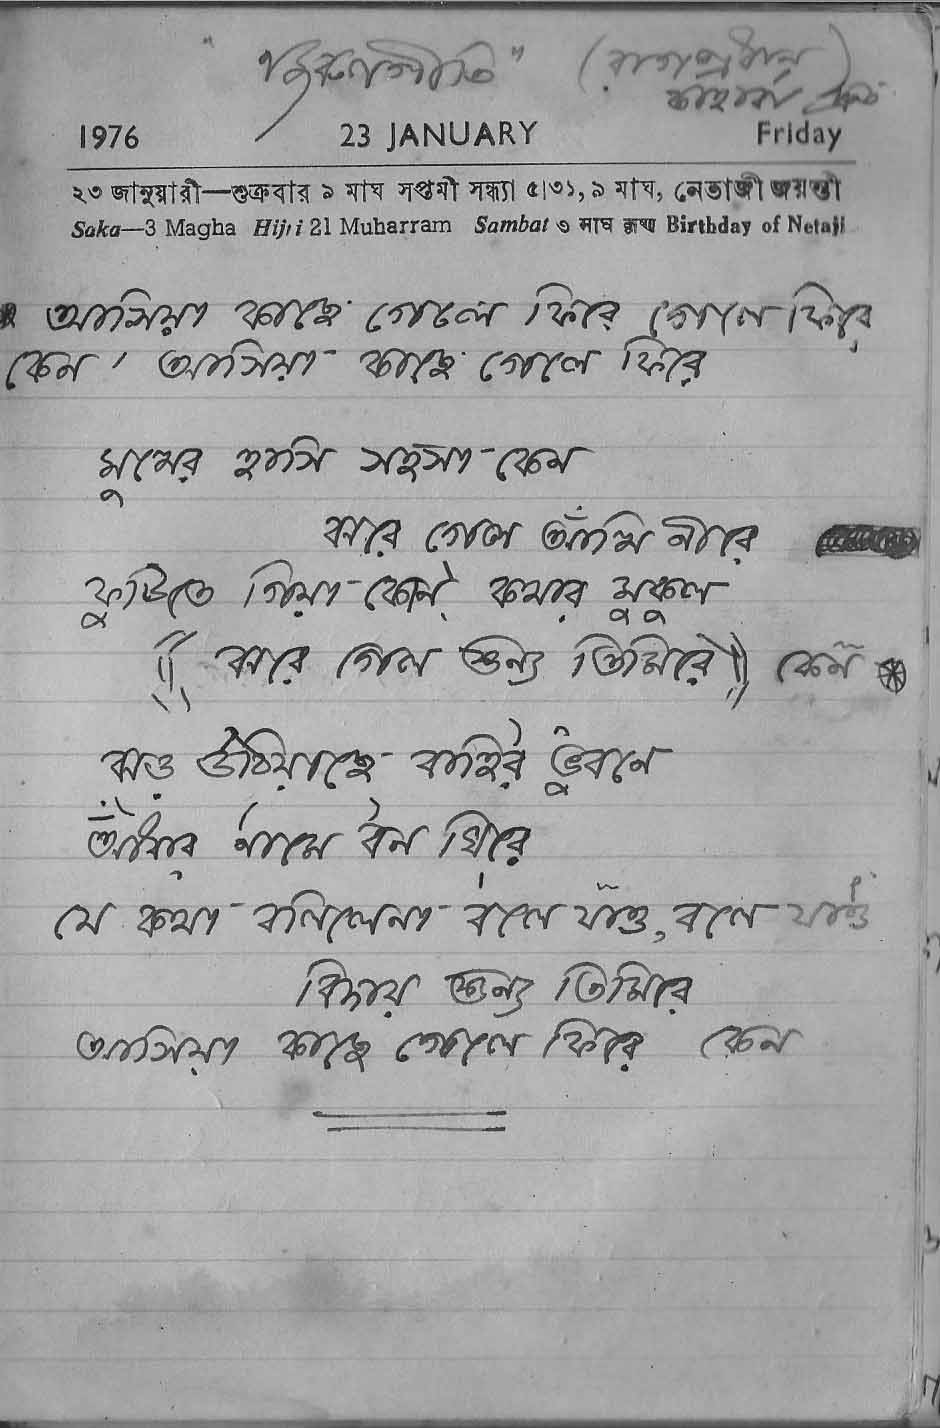 "নজরুলগীতি" (রাগপ্রধান)
কাহারবা
1976 23 JANUARY Friday
২৩ জানুয়ারী—শুক্রবার ৯ মাঘ সপ্তমী সন্ধ্যা ৫।৩১, ৯ মাঘ, নেতাজী জয়ন্তী
Saka—3 Magha Hijri 21 Muharram Sambat ৩ माघ कृष्ण Birthday of Netaji
আসিয়া কাছে গেলে ফিরে গেলে ফিরে
কেন, আসিয়া কাছে গেলে ফিরে
মুখের হাসি সহসা কেন
ঝরে গেল আঁখি নীরে
ফুটিতে গিয়া কোন্ কথার মুকুল
(( ঝরে গেল শুন্য তিমিরে )) কেন
ঝড় উঠিয়াছে বাহির ভুবনে
আঁধার নামে বন ঘিরে
যে কথা বলিলেনা বলে যাও, বলে যাও
বিদায় শুন্য তিমিরে
আসিয়া কাছে গেলে ফিরে কেন